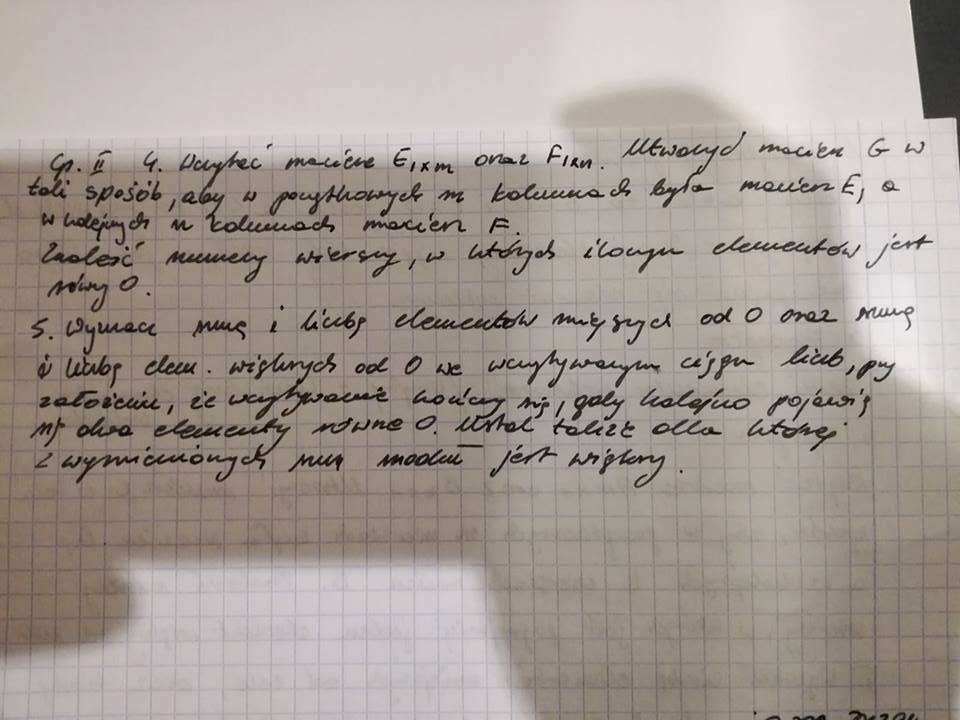 Gr. II 4. Wczytać macierz E₁ₓₘ oraz F₁ₓₙ. Utworzyć macierz G w
taki sposób, aby w początkowych m kolumnach była macierz E, a
w kolejnych n kolumnach macierz F.
Znaleść numery wierszy, w których iloczyn elementów jest
równy 0.
5. Wyznacz sumę i liczbę elementów mniejszych od 0 oraz sumę
i liczbę elem. większych od 0 we wczytywanym ciągu liczb, przy
założeniu, że wczytywanie kończy się, gdy kolejno pojawią
się dwa elementy równe 0. Ustal także dla której
z wymienionych sum moduł jest większy.